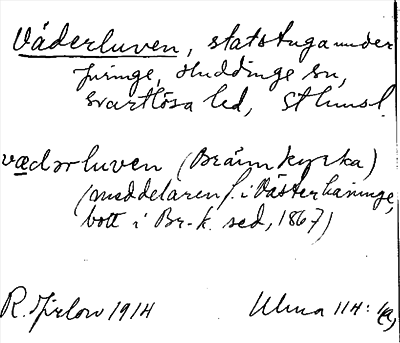 Väderluven, statstuga under
Juringe, Huddinge sn,
Svartlösa hd, Sthmsl.
vædərluven (Brännkyrka)
(meddelaren f. i Västerhaninge,
bott i Br-k. sed. 1867)
R. Jirlow 1914
Ulma 114: